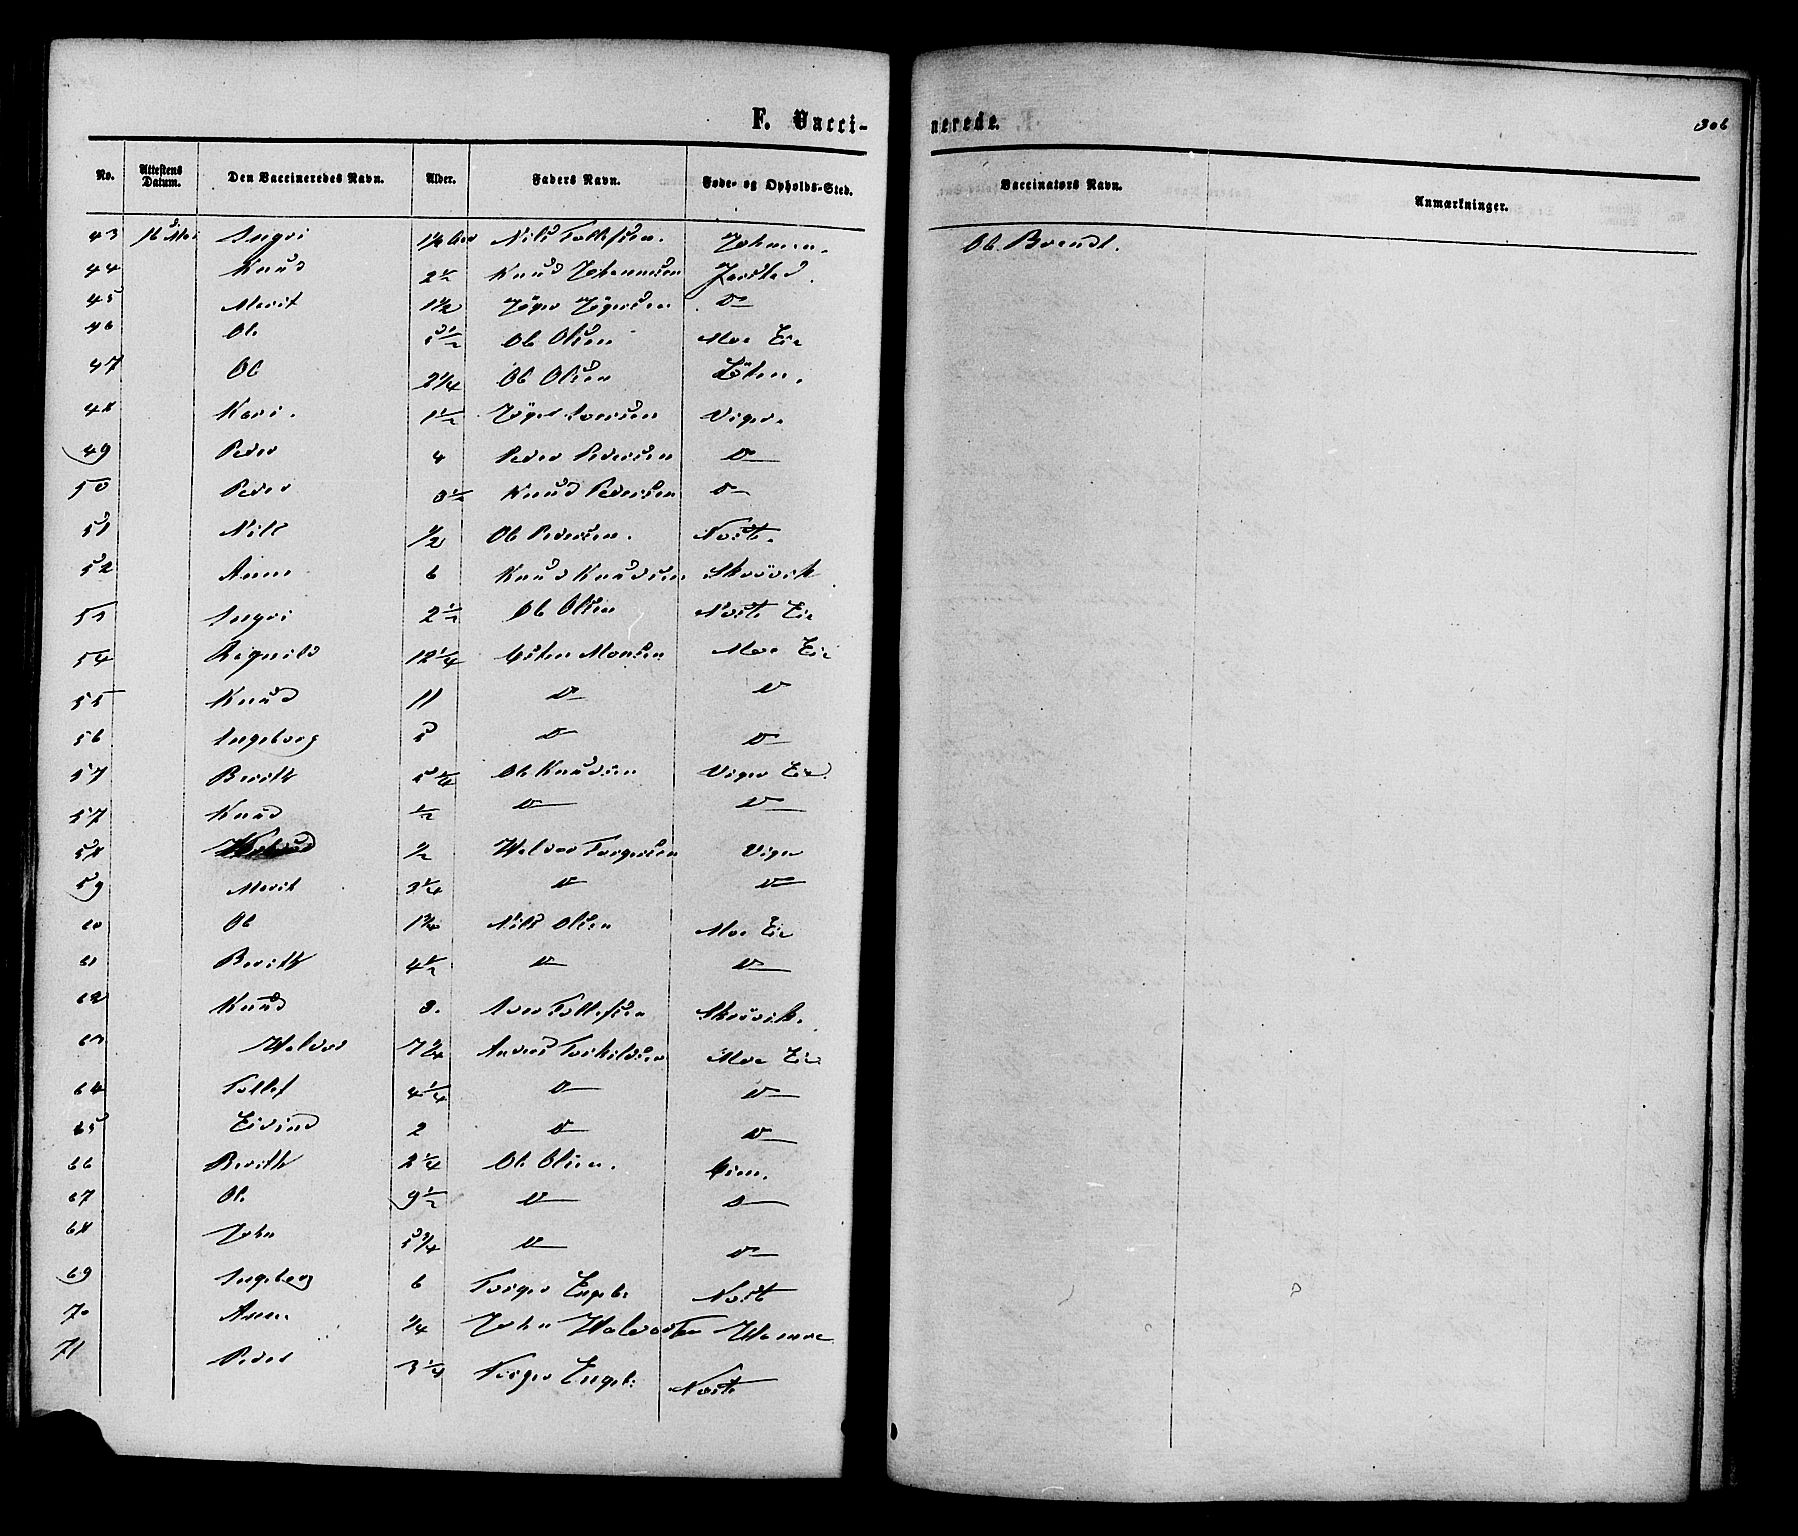 F. Vacci-
nerede.
306
No. Attestens Datum. Den Vaccineredes Navn. Alder. Faders Navn. Føde- og Opholds-Sted.
Vaccinators Navn. Anmærkninger.
43 Ingri 1½ Nils Tollefsen.
Ole Brendl.
44 Knud 2½ Knud Johannesen
45 Marit 1½ D
46 Ole 5½ Ole Olsen Moe Eie
47 Ole 2¼ Ole Olsen
48 Kari. 1½ Viger
49 Peder 4 Peder Pedersen D
50 Peder 3½ Knud Pedersen D
51 Nils ½ Ole Pedersen.
52 Anne 6 Knud Knudsen
53 Ingri 2½ Ole Olsen Eie
54 Ragnild 12¼ Monsen Moe Eie
55 Knud 11 D D
56 Ingeborg 5 D D
57 Berith 5¾ Ole Knudsen Viger Eie
57 Knud ½ D D
58 ½ Halvor Torgersen Viger
59 Marit 3¼ D D
60 Ole 1¾ Nils Olsen Moe Eie
61 Berith 4½ D D
62 Knud 3. Iver Tollefsen
63 Halvor 7¼ Anders Torkildsen Moe Eie
64 Tollef 4¼ D D
65 Eivind 2 D D
66 Berith 2¼ Ole Olsen.
67 Ole 9½ D D
68 John 5¾ D D
69 Ingeborg 6 Torger Engeb:
70 Anne ¼ John Halvorsen
71 Peder 3¼ Torger Engeb: